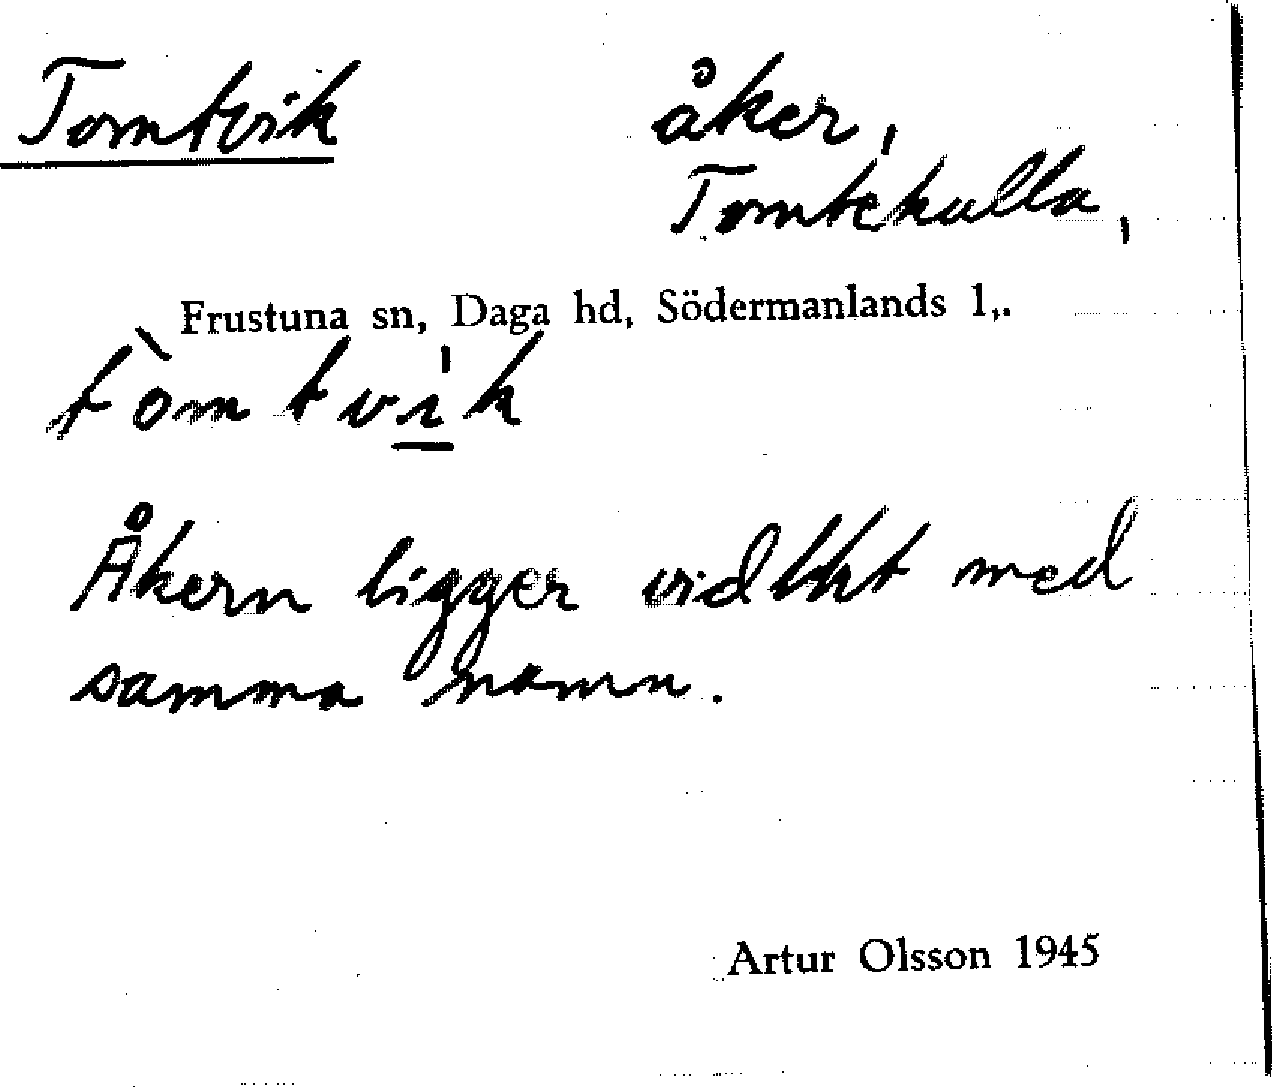 Tomtvik åker,
Tomtekulla,
Frustuna sn, Daga hd, Södermanlands l,.
tòmtví̲k
Åkern ligger vid lht med
samma namn.
Artur Olsson 1945